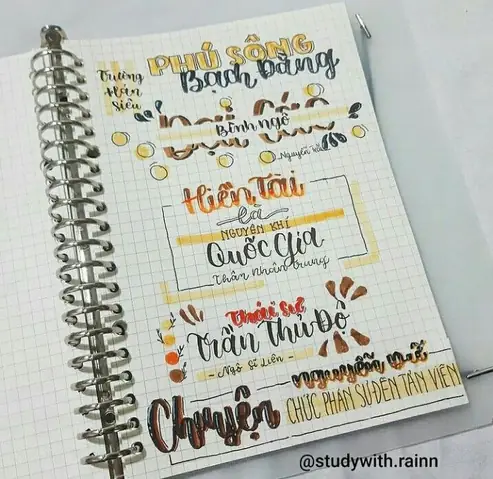 PHÚ SÔNG
Bạch Đằng
Trương
Hán
Siêu
Đại Cáo
Bình ngô
Hiền Tài
là
NGUYÊN KHÍ
Quốc Gia
Thân Nhân Trung
Thái Sư
Trần Thủ Độ
- Ngô Sĩ Liên -
Chuyện
CHỨC PHÁN SỰ ĐỀN TẢN VIÊN
@studywith.rainn